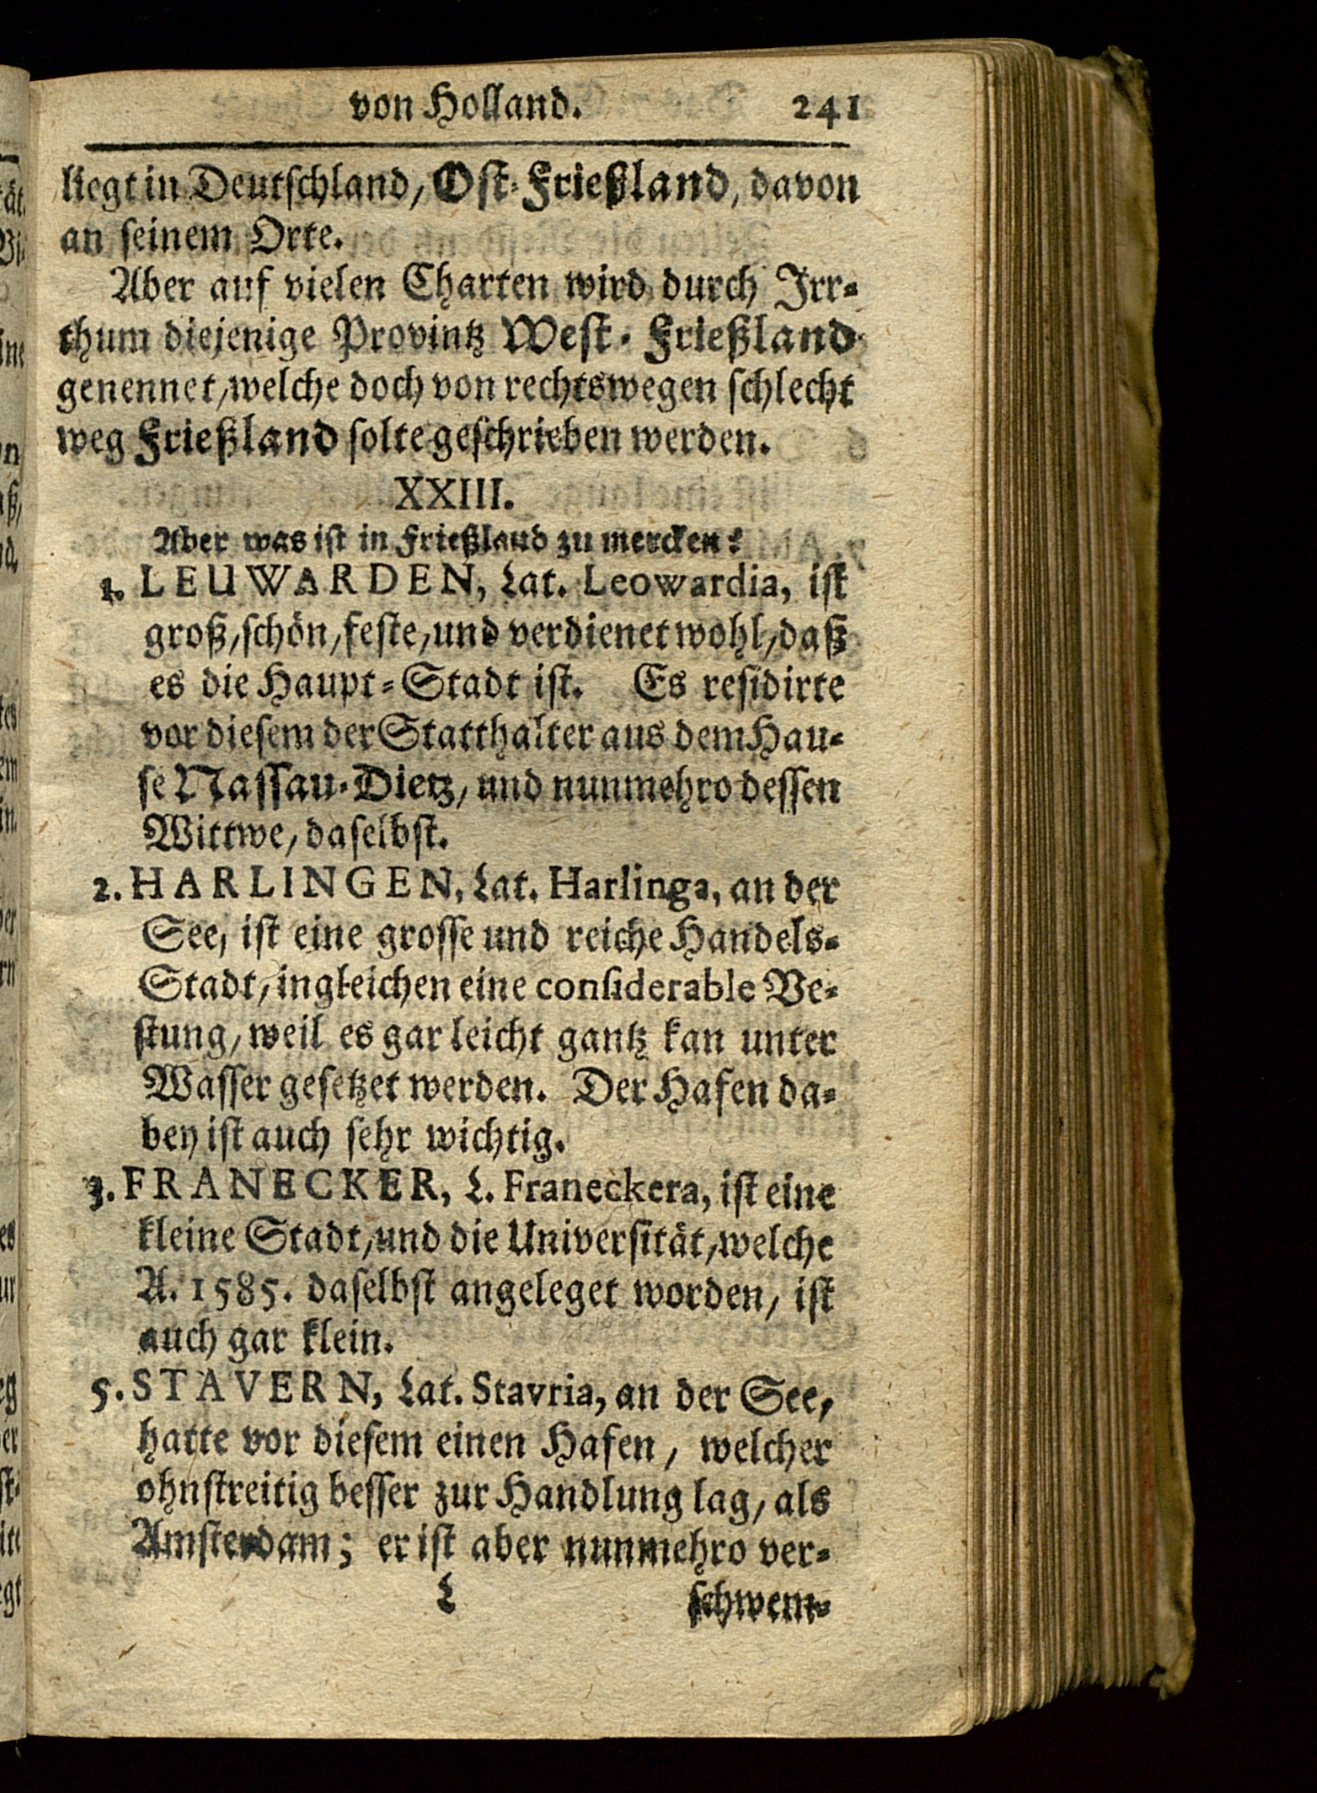 von Holland. 241
liegt in Deutschland, Ost-Frießland, davon
an seinem Orte.
Aber auf vielen Charten wird durch Irr-
thum diejenige Provintz West-Frießland
genennet, welche doch von rechtswegen schlecht
weg Frießland solte geschrieben werden.
XXIII.
Aber was ist in Frießland zu mercken?
1. LEUWARDEN, Lat. Leowardia, ist
groß, schön, feste, und verdienet wohl, daß
es die Haupt-Stadt ist. Es residirte
vor diesem der Statthalter aus dem Hau-
se Nassau-Dietz, und nunmehro dessen
Wittwe, daselbst.
2. HARLINGEN, Lat. Harlinga, an der
See, ist eine grosse und reiche Handels-
Stadt, ingleichen eine considerable Ve-
stung, weil es gar leicht gantz kan unter
Wasser gesetzet werden. Der Hafen da-
bey ist auch sehr wichtig.
3. FRANECKER, L. Franeckera, ist eine
kleine Stadt, und die Universität, welche
A. 1585. daselbst angeleget worden, ist
auch gar klein.
5. STAVERN, Lat. Stavria, an der See,
hatte vor diesem einen Hafen, welcher
ohnstreitig besser zur Handlung lag, als
Amsterdam; er ist aber nunmehro ver-
L schwem-